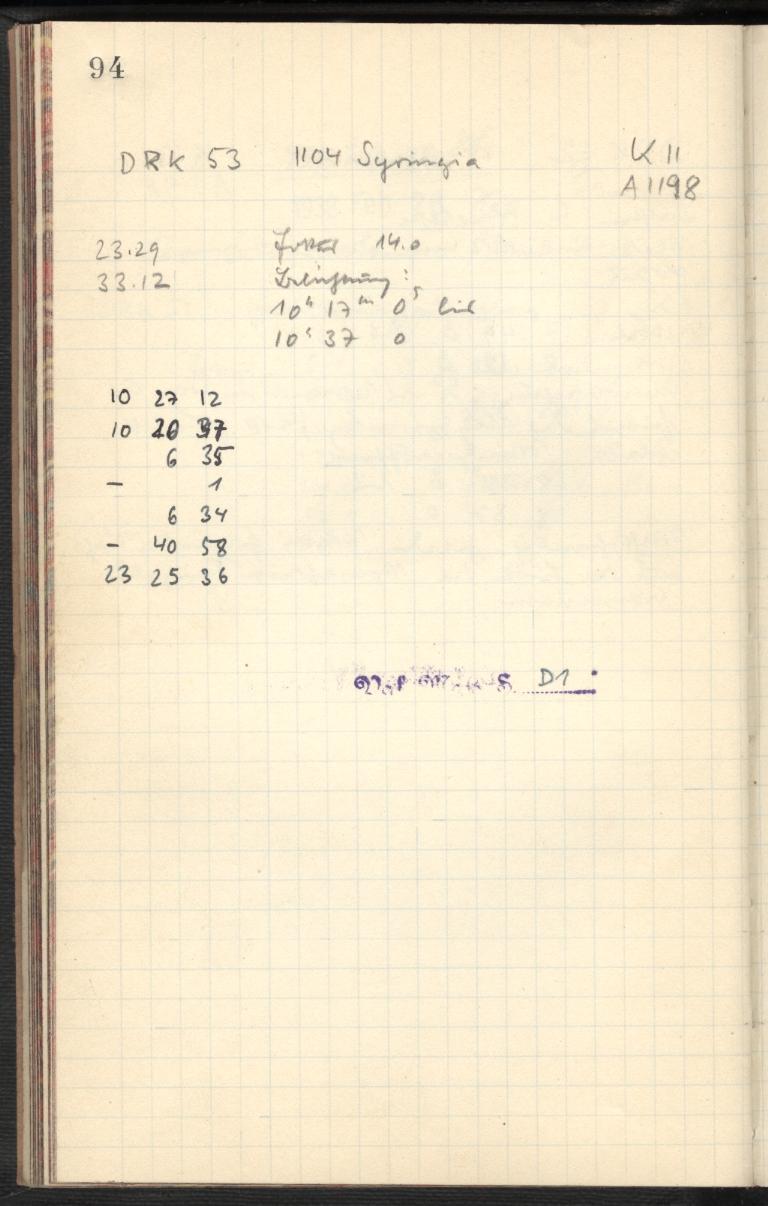 94
DRK 53 1104 Syringia K II
A 1198
23.29 Fokus 14.0
33.12 Belichtung:
10ʰ 17ᵐ 0ˢ bis
10ʰ 37 0
10 27 12
10 20 37
6 35
- 1
6 34
- 40 58
23 25 36
D1